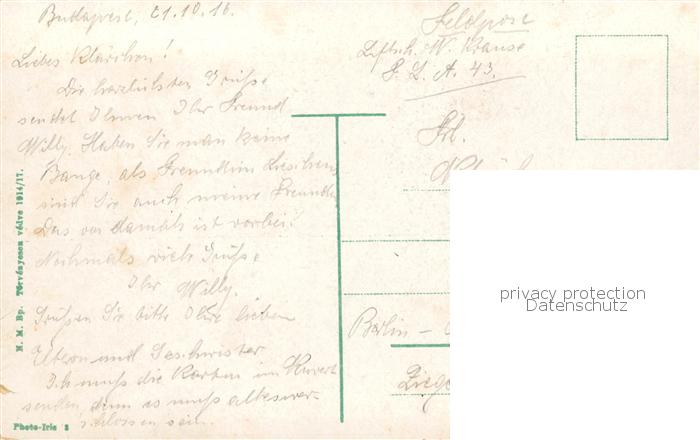 Budapest, 21.10.16.
Liebes Klärchen!
Die herzlichsten Grüße
sendet Ihnen Ihr Freund
Willy. Haben Sie man keine
Bange, als Freundin Lieschens
sind Sie auch meine Freundin.
Das von damals ist vorbei!
Nochmals viele Grüße
Ihr Willy.
Grüßen Sie bitte Ihre lieben
Eltern und Geschwister
Ich muß die Karten im Kuvert
senden, denn es muß alles ver-
schlossen sein.
Feldpost
Luftsch. W. Krause
F. L. A. 43.
Frl.
Berlin –
Ziege
N. M. Bp. Törvényesen védve 1914/17.
Photo-Iris
privacy protection
Datenschutz